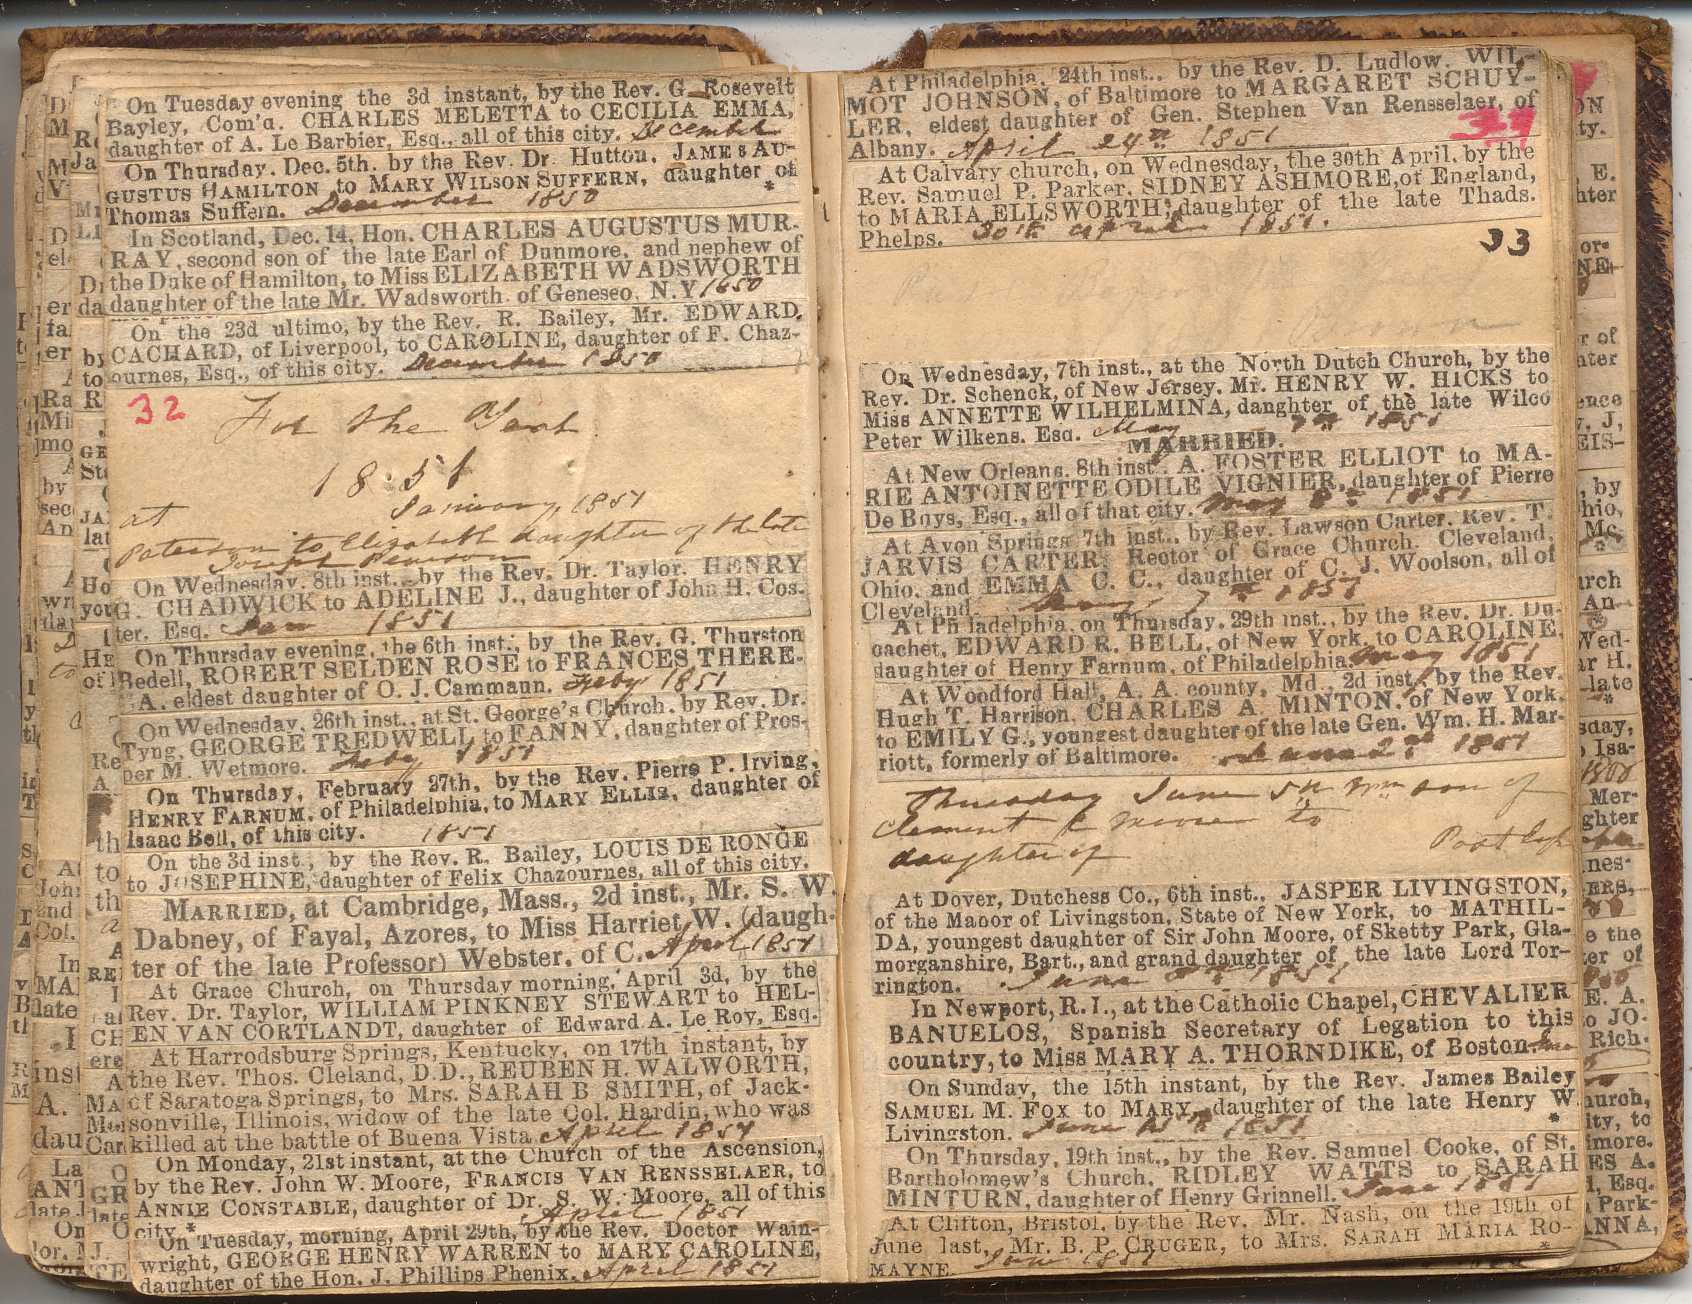 On Tuesday evening the 3d instant, by the Rev. G. Rosevelt
Bayley, Com'd. CHARLES MELETTA to CECILIA EMMA,
daughter of A. Le Barbier, Esq., all of this city. December
On Thursday, Dec. 5th, by the Rev. Dr. Hutton, JAMES AU-
GUSTUS HAMILTON to MARY WILSON SUFFERN, daughter of
Thomas Suffern. December 1850 *
In Scotland, Dec. 14, Hon. CHARLES AUGUSTUS MUR-
RAY, second son of the late Earl of Dunmore, and nephew of
the Duke of Hamilton, to Miss ELIZABETH WADSWORTH
daughter of the late Mr. Wadsworth, of Geneseo, N.Y 1850
On the 23d ultimo, by the Rev. R. Bailey, Mr. EDWARD
CACHARD, of Liverpool, to CAROLINE, daughter of F. Chaz-
ournes, Esq., of this city. December 1850
32
For the Year
1851
January, 1851
at
Paterson to Elizabeth daughter of the late
Joseph Pearson
On Wednesday, 8th inst., by the Rev. Dr. Taylor, HENRY
G. CHADWICK to ADELINE J., daughter of John H. Cos-
ter, Esq. Jan 1851
On Thursday evening, the 6th inst., by the Rev. G. Thurston
Bedell, ROBERT SELDEN ROSE to FRANCES THERE-
A. eldest daughter of O. J. Cammann. Feby 1851
On Wednesday, 26th inst., at St. George's Church, by Rev. Dr.
Tyng, GEORGE TREDWELL to FANNY, daughter of Pros-
per M. Wetmore. Feby 1851
On Thursday, February 27th, by the Rev. Pierre P. Irving,
HENRY FARNUM, of Philadelphia, to MARY ELLIS, daughter of
Isaac Bell, of this city. 1851
On the 3d inst., by the Rev. R. Bailey, LOUIS DE RONGE
to JOSEPHINE, daughter of Felix Chazournes, all of this city.
MARRIED, at Cambridge, Mass., 2d inst., Mr. S. W.
Dabney, of Fayal, Azores, to Miss Harriet W. (daugh-
ter of the late Professor) Webster, of C. April 1851
At Grace Church, on Thursday morning, April 3d, by the
Rev. Dr. Taylor, WILLIAM PINKNEY STEWART to HEL-
EN VAN CORTLANDT, daughter of Edward A. Le Roy, Esq.
At Harrodsburg Springs, Kentucky, on 17th instant, by
the Rev. Thos. Cleland, D.D., REUBEN H. WALWORTH,
of Saratoga Springs, to Mrs. SARAH B SMITH, of Jack-
sonville, Illinois, widow of the late Col. Hardin, who was
killed at the battle of Buena Vista April 1851
On Monday, 21st instant, at the Church of the Ascension,
by the Rev. John W. Moore, FRANCIS VAN RENSSELAER, to
ANNIE CONSTABLE, daughter of Dr. S. W. Moore, all of this
city. * April 1851
On Tuesday, morning, April 29th, by the Rev. Doctor Wain-
wright, GEORGE HENRY WARREN to MARY CAROLINE,
daughter of the Hon. J. Phillips Phenix. April 1851
At Philadelphia, 24th inst., by the Rev. D. Ludlow. WIL-
MOT JOHNSON, of Baltimore to MARGARET SCHUY-
LER, eldest daughter of Gen. Stephen Van Rensselaer, of
Albany. April 24th 1851
At Calvary church, on Wednesday, the 30th April, by the
Rev. Samuel P. Parker, SIDNEY ASHMORE, of England,
to MARIA ELLSWORTH, daughter of the late Thads.
Phelps. 30th April 1851.
33
On Wednesday, 7th inst., at the North Dutch Church, by the
Rev. Dr. Schenck, of New Jersey, Mr. HENRY W. HICKS to
Miss ANNETTE WILHELMINA, danghter of the late Wilco
Peter Wilkens, Esq. May 7th 1851
MARRIED.
At New Orleans, 8th inst., A. FOSTER ELLIOT to MA-
RIE ANTOINETTE ODILE VIGNIER, daughter of Pierre
De Buys, Esq., all of that city. May 8th 1851
At Avon Springs 7th inst., by Rev. Lawson Carter, Rev. T.
JARVIS CARTER, Rector of Grace Church, Cleveland,
Ohio, and EMMA C. C., daughter of C. J. Woolson, all of
Cleveland. May 7th 1851
At Philadelphia, on Thursday, 29th inst., by the Rev. Dr. Du-
cachet, EDWARD R. BELL, of New York, to CAROLINE,
daughter of Henry Farnum, of Philadelphia. May 1851
At Woodford Hall, A. A. county, Md., 2d inst., by the Rev.
Hugh T. Harrison, CHARLES A. MINTON, of New York,
to EMILY G., youngest daughter of the late Gen. Wm. H. Mar-
riott, formerly of Baltimore. June 2nd 1851
Thursday June 5th Wm son of
Clement C Moore to
daughter of
At Dover, Dutchess Co., 6th inst., JASPER LIVINGSTON,
of the Manor of Livingston, State of New York, to MATHIL-
DA, youngest daughter of Sir John Moore, of Sketty Park, Gla-
morganshire, Bart., and grand daughter of the late Lord Tor-
rington. June 1851
In Newport, R.I., at the Catholic Chapel, CHEVALIER
BANUELOS, Spanish Secretary of Legation to this
country, to Miss MARY A. THORNDIKE, of Boston.
On Sunday, the 15th instant, by the Rev. James Bailey
SAMUEL M. FOX to MARY, daughter of the late Henry W
Livingston. June 15th 1851 *
On Thursday, 19th inst., by the Rev. Samuel Cooke, of St.
Bartholomew's Church, RIDLEY WATTS to SARAH
MINTURN, daughter of Henry Grinnell. June 1851
At Clifton, Bristol, by the Rev. Mr. Nash, on the 19th of
June last, Mr. B. P. CRUGER, to Mrs. SARAH MARIA RO-
MAYNE. June 1851 *